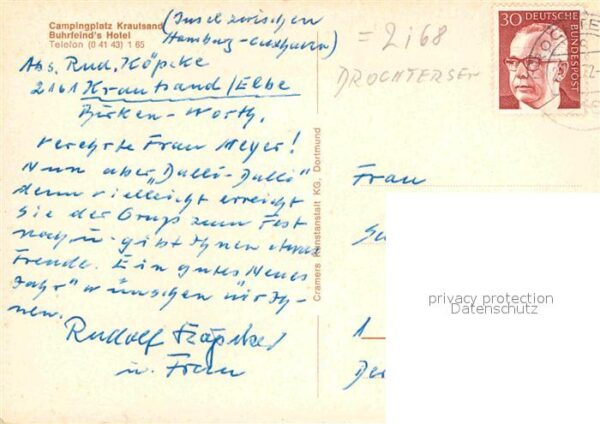 Campingplatz Krautsand
Buhrfeind's Hotel
Telefon (0 41 43) 1 65
(Insel zwischen
Hamburg-Cuxhaven)
Abs. Rud. Köpcke
2161 Krautsand/Elbe
Birken-Worth.
Verehrte Frau Meyer!
Nun aber "Dalli-Dalli"
denn vielleicht erreicht
Sie der Gruss zum Fest
noch u. gibt Ihnen etwas
Freude. Ein gutes "Neues
Jahr" wünschen wir Ih-
nen.
Rudolf Köpcke
u. Frau
Cramers Kunstanstalt KG, Dortmund
= 2168
DROCHTERSEN
30 DEUTSCHE
BUNDESPOST
Frau
privacy protection
Datenschutz
1